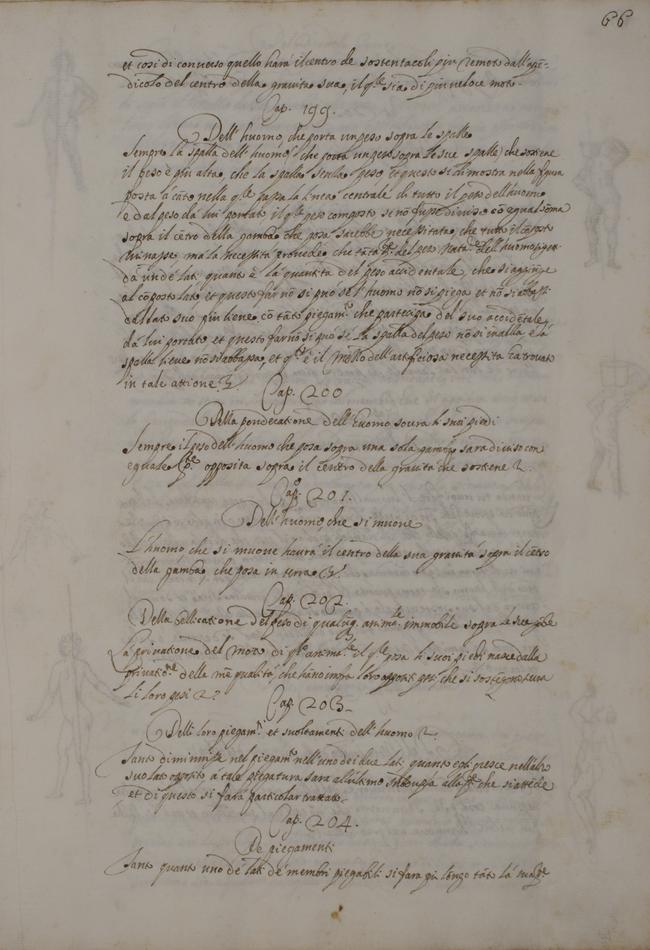 66
et cosi di converso quello harà il centro de sostentacoli piu remoto dall'
dicolo del centro della gravita sua, il q.le sia di piu veloce moto.
Cap. 199.
Dell' huomo, che porta un peso sopra le spalle
Sempre la spalla dell' huomo che porta un peso sopra le sue spalle, che sostiene
il peso è piu alta, che la spalla senza peso et questo si dimostra nella figura
posta à cãto nella q.le passa la linea centrale di tutto il peso dell' huomo
e dal peso da lui portato il q.le peso composto se nõ fusse diviso cõ egual sõma
sopra il cẽtro della gamba che posa sarebbe necessitato, che tutto il cõposto
ruinasse ma la necessita provede che tãta p.te del peso dell' huomo
da un de lati quanto è la quantita del peso accidentale, che si aggiũge
al cõposto lato et questo far nõ si può se l' huomo nõ si piega et nõ s'
dal lato suo piu lieve cõ tãto piegam.to che partecipe del suo accidẽtale
da lui portato et questo far nõ si può se la spalla del peso nõ si inalza, è la
spalla lieve nõ s'abbassa, et q.to è il mezzo dell' artificiosa necessita ha trovato
in tale attione
Cap. 200
Della ponderatione dell' huomo sovra li suoi piedi
Sempre il peso dell' huomo che posa sopra una sola gamba sara diviso con
eguale p.te opposita sopra il centro della gravita che sostiene
Cap.o 201.
Dell' huomo che si muove
L'huomo che si muove haurà il centro della sua gravità sopra il cẽtro
della gamba, che posa in terra
Cap. 202.
Della del peso di qualũq. anima.le immobile sopra le sue
La privatione del moto di q.lo anima.le il q.le posa li suoi piedi nasce dalla
privatio.ne della qualità, che hãno infra loro opposit che si sostengono sova
li loro pesi
Cap 203.
Delli loro piegam.ti et suoltamenti dell' huomo
Tanto diminuisse nel piegam.to nell' uno dei due lati quanto cresce nell' altro
suo lato opposito à tale piegatura sara all'ultimo alla che
et di questo si farà particolar trattato.
Cap. 204.
De piegamenti
Tanto quanto uno de lati de membri piegabili si fara piu lõngo tãto la